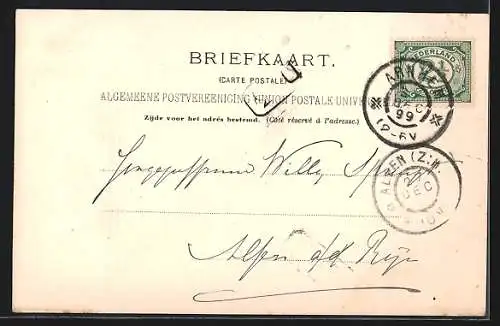 BRIEFKAART.
(CARTE POSTALE)
ALGEMEENE POSTVEREENIGING (UNION POSTALE UNIVER
Zijde voor het adres bestemd. (Côté réservé à l'adresse.)
NEDERLAND
ARNHEM
DEC
99
12-6V
ALFEN (Z:H.
2
DEC
Willy
Alfen a/d Rijn